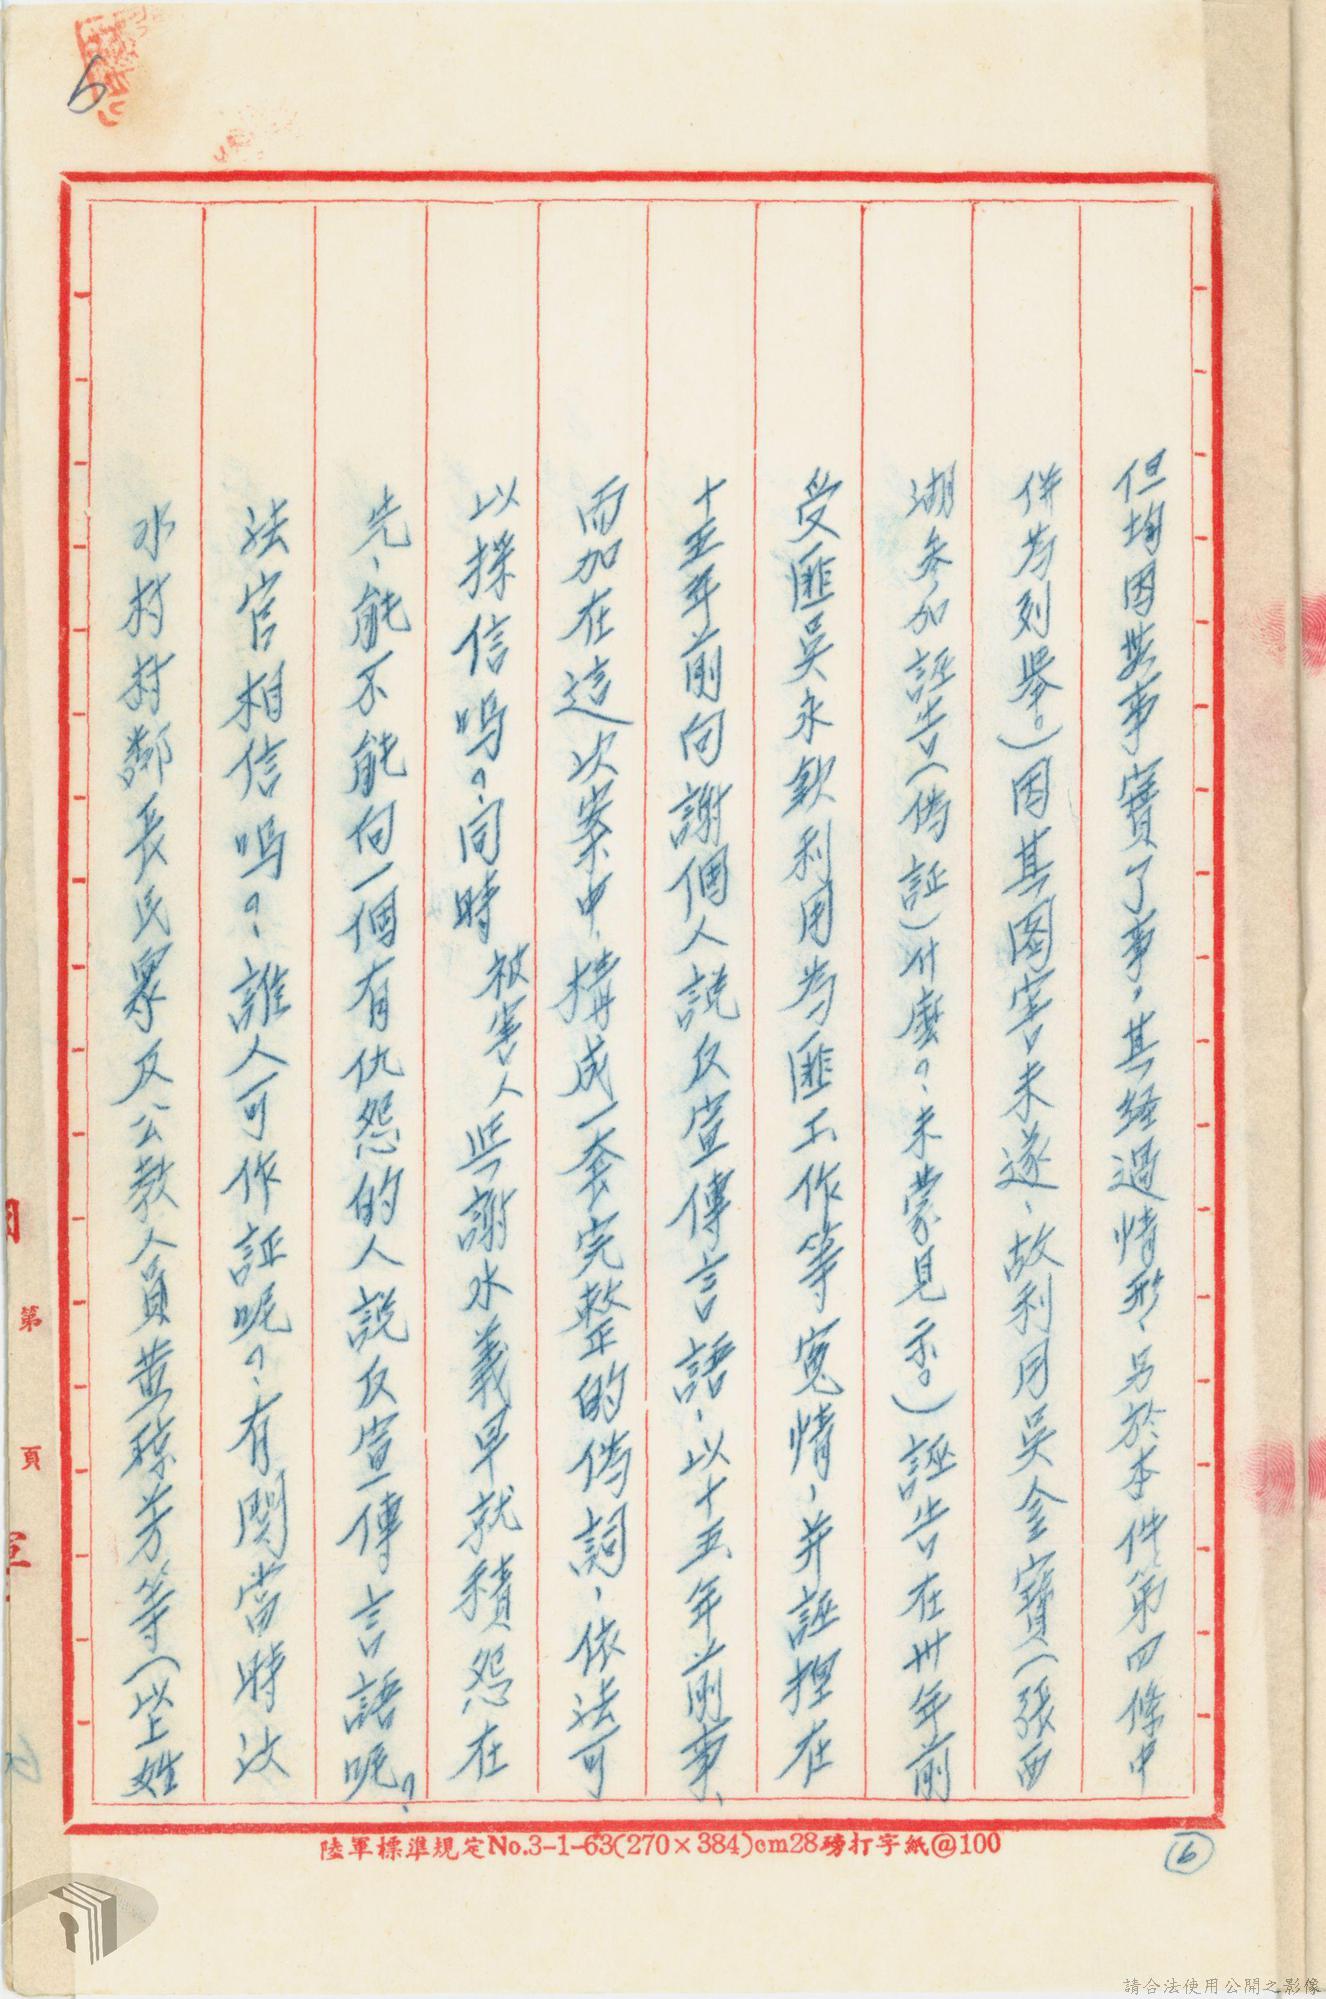 6
但均因無事實了事，其經過情形、另於本件第四條中
併为列舉。）因其图害未遂、故利用吴金寶（張西
湖参加誣告（偽証）什麼？未蒙見示。）誣告在卅年前
受匪吴永欽利用为匪工作等寃情，并誣揑在
十五年前向謝個人説反宣傳言語，以十五年前事、
而加在這次案中，構成一套完整的偽詞，依法可
以採信嗎？同時被害人与謝水義早就積怨在
先、能不能向一個有仇怨的人説反宣傳言語呢？
法官相信嗎？誰人可作証呢？有関當時汶
水村村鄰長民眾及公教人員黄琼芳等（以上姓
陸軍標準規定No.3-1-63(270×384)cm28磅打字紙@100
6
第 頁
請合法使用公開之影像